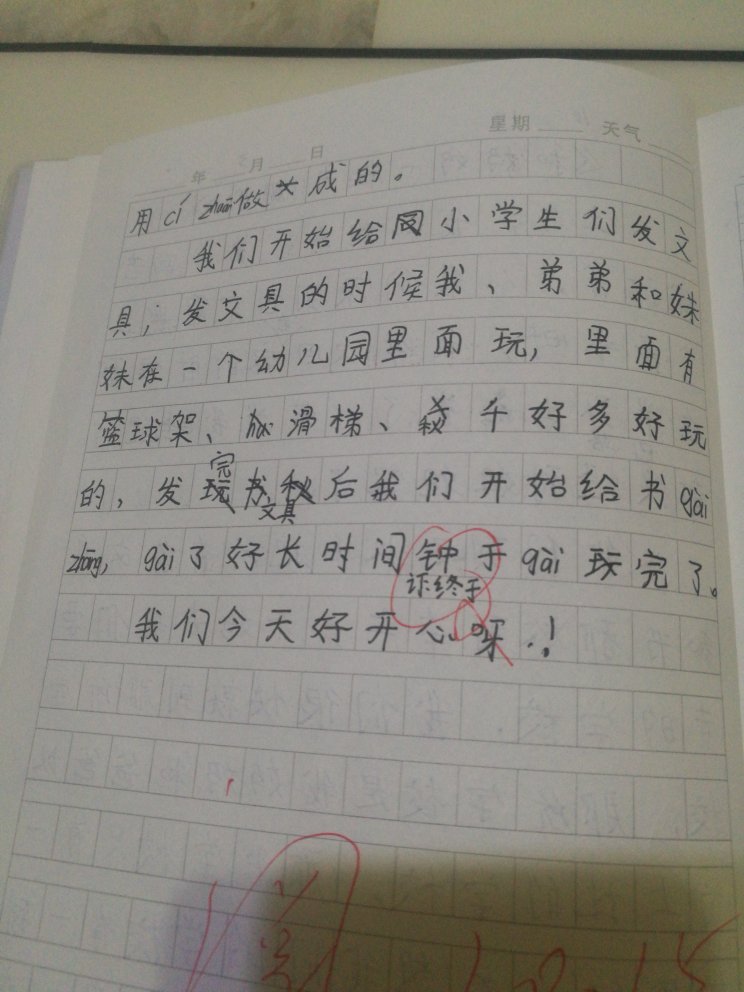 星期 天气
年 月 日
用cí zhuān做成的。
我们开始给同小学生们发文
具,发文具的时候我、弟弟和妹
妹在一个幼儿园里面玩,里面有
篮球架、滑梯、秋千好多好玩
的,发完文具后我们开始给书gài
zhāng,gài了好长时间钟于gài玩完了。
终于
我们今天好开心呀!